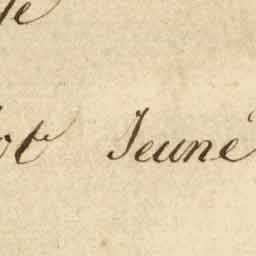 te
ot Jeune